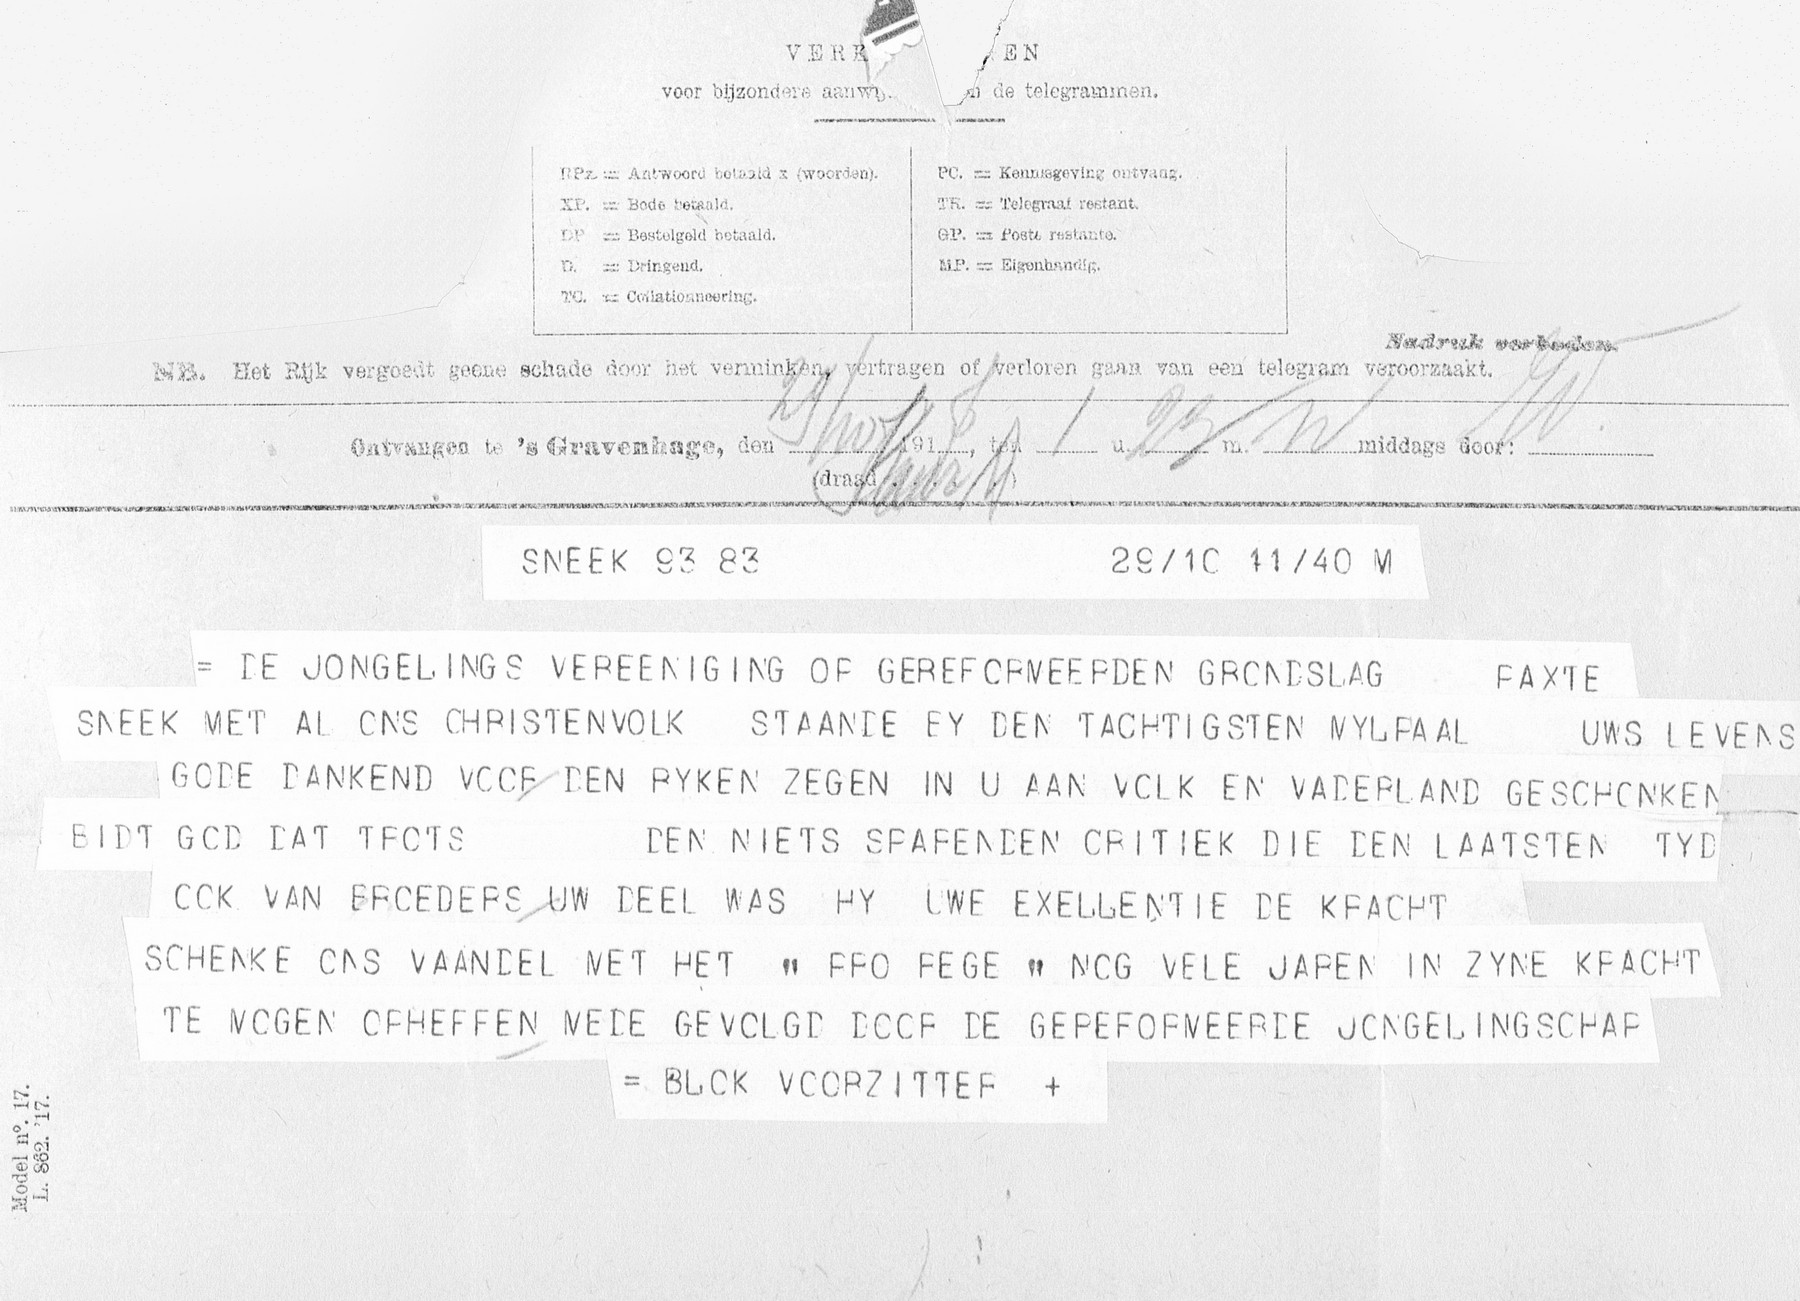 VERK EN
voor bijzondere aanwij n de telegrammen.
RPx = Antwoord betaald x (woorden).
XP. = Bode betaald.
DP = Bestelgeld betaald.
D. = Dringend.
TC. = Collationneering.
PC. = Kennisgeving ontvang.
TR. = Telegraaf restant.
GP. = Poste restante.
MP. = Eigenhandig.
Nadruk verboden.
NB. Het Rijk vergoedt geene schade door het verminken, vertragen of verloren gaan van een telegram veroorzaakt.
Ontvangen te 's Gravenhage, den 29/ 1918, ten 1 u. 23 m. middags door:
(draad )
SNEEK 93 83 29/10 11/40 M
= DE JONGELINGS VEREENIGING OP GEREFORMEERDEN GRONDSLAG PAXTE
SNEEK MET AL ONS CHRISTENVOLK STAANDE BY DEN TACHTIGSTEN MYLPAAL UWS LEVENS
GODE DANKEND VOOR DEN RYKEN ZEGEN IN U AAN VOLK EN VADERLAND GESCHONKEN
BIDT GOD DAT TROTS DEN NIETS SPARENDEN CRITIEK DIE DEN LAATSTEN TYD
OOK VAN BROEDERS UW DEEL WAS HY UWE EXELLENTIE DE KRACHT
SCHENKE ONS VAANDEL MET HET " PRO REGE " NOG VELE JAREN IN ZYNE KRACHT
TE MOGEN OPHEFFEN MEDE GEVOLGD DOOR DE GEREFORMEERDE JONGELINGSCHAP
= BLOK VOORZITTER +
Model nº. 17.
L. 862. '17.